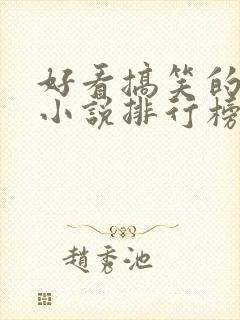 好看搞笑的
小说排行榜
趙秀池